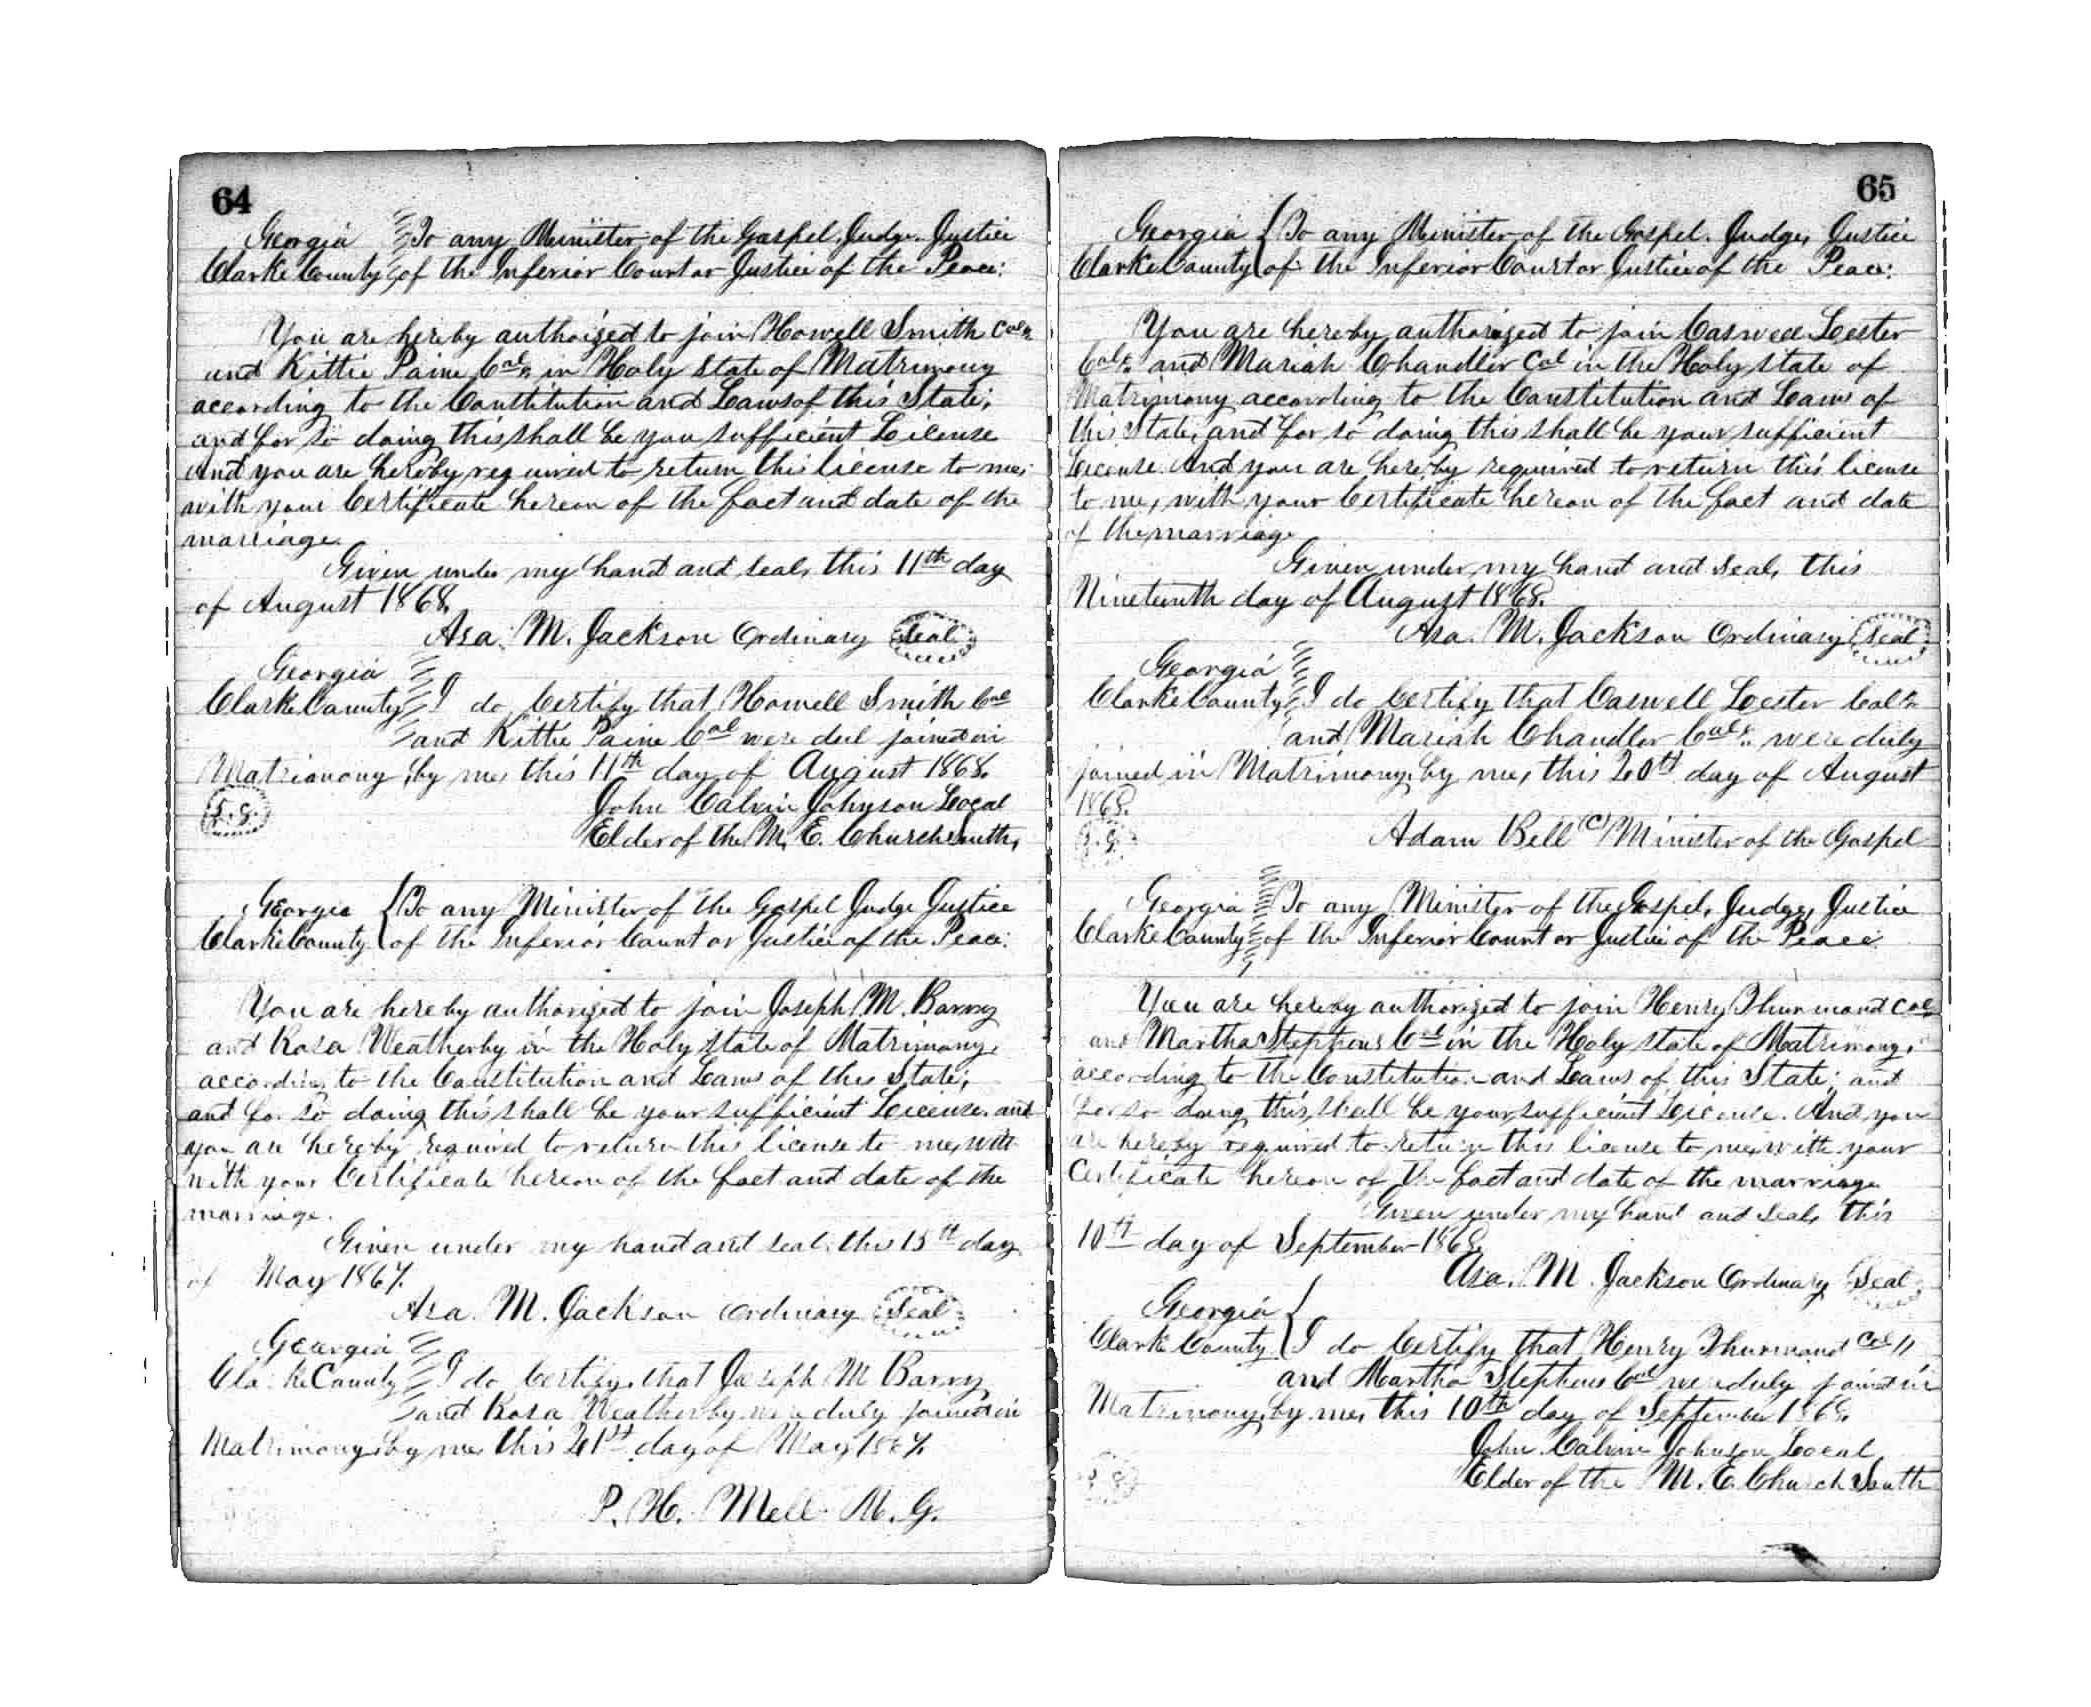 64
Georgia To any Minister of the Gospel, Judge, Justice
Clarke County of the Inferior Court or Justice of the Peace:
You are hereby authoized to join Howell Smith Col.
and Kittie Paine Col. in Holy state of Matrimony
according to the Constitution and Laws of this State;
and for so doing this shall be you sufficient License
And you are hereby required to return this license to me,
with your Certificate hereon of the fact and date of the
marriage.
Given under my hand and seal, this 11th day
of August 1868.
Asa. M. Jackson Ordinary Seal
Georgia
Clarke County I do Certify that Howell Smith Col
and Kittie Paine Col were dul joined in
Matrimony by me, this 11th day of August 1868.
John Calvin Johnson Local
Elder of the M. E. Church South,
Georgia To any Minister of the Gospel Judge Justice
Clarke County of the Inferior Count or Justice of the Peace:
You are hereby authorized to join Joseph M. Barry
and Rosa Weatherby in the Holy state of Matrimony,
according to the Constitution and Laws of this State;
and for so doing this shall be your sufficient License. and
you are hereby required to return this license to me, with
with your Certificate hereon of the fact and date of the
marriage.
Given under my hand and seal, this 15th day
of May 1867.
Asa. M. Jackson Ordinary Seal
Georgia
Clarke County I do Certify, that Joseph M Barry
and Rosa Weatherby were duly joined in
Matrimony, by me, this 21st day of May, 1867.
P. H. Mell M. G.
65
Georgia To any Minister of the Gospel, Judge, Justice
Clarke County of the Inferior Court or Justice of the Peace:
You are hereby authorized to join Caswell Lester
Col. and Mariah Chandler Col in the Holy state of
Matrimony according to the Constitution and Laws of
this State, and for so doing this shall be your sufficient
License. And you are hereby required to return this license
to me, with your Certificate hereon of the fact and date
of the marriage
Given under my hand and seal, this
Nineteenth day of August 1868.
Asa. M. Jackson Ordinary Seal
Georgia
Clarke County I do Certify that Caswell Lester Col.
and Mariah Chandler Col. were duly
joined in Matrimony, by me, this 20th day of August
1868.
Adam Bell (C) Minister of the Gospel
Georgia To any Minister of the Gospel, Judge, Justice
Clarke County of the Inferior Count or Justice of the Peace
You are hereby authorized to join Henry Thurmand Col.
and Martha Stephens Col in the Holy state of Matrimony,
according to the Constitution and Laws of this State; and
for so doing this, shall be your sufficient License. And you
are hereby required to return this license to me, with your
Certificate hereon of the fact and date of the marriage
Given under my hand and seal, this
10th day of September 1868.
Asa. M. Jackson Ordinary Seal
Georgia
Clarke County I do Certify that Henry Thurmand Col
and Martha Stephens Col were duly joined in
Matrimony, by me, this 10th day of September 1868.
John Calvin Johnson Local
Elder of the M. E. Church South